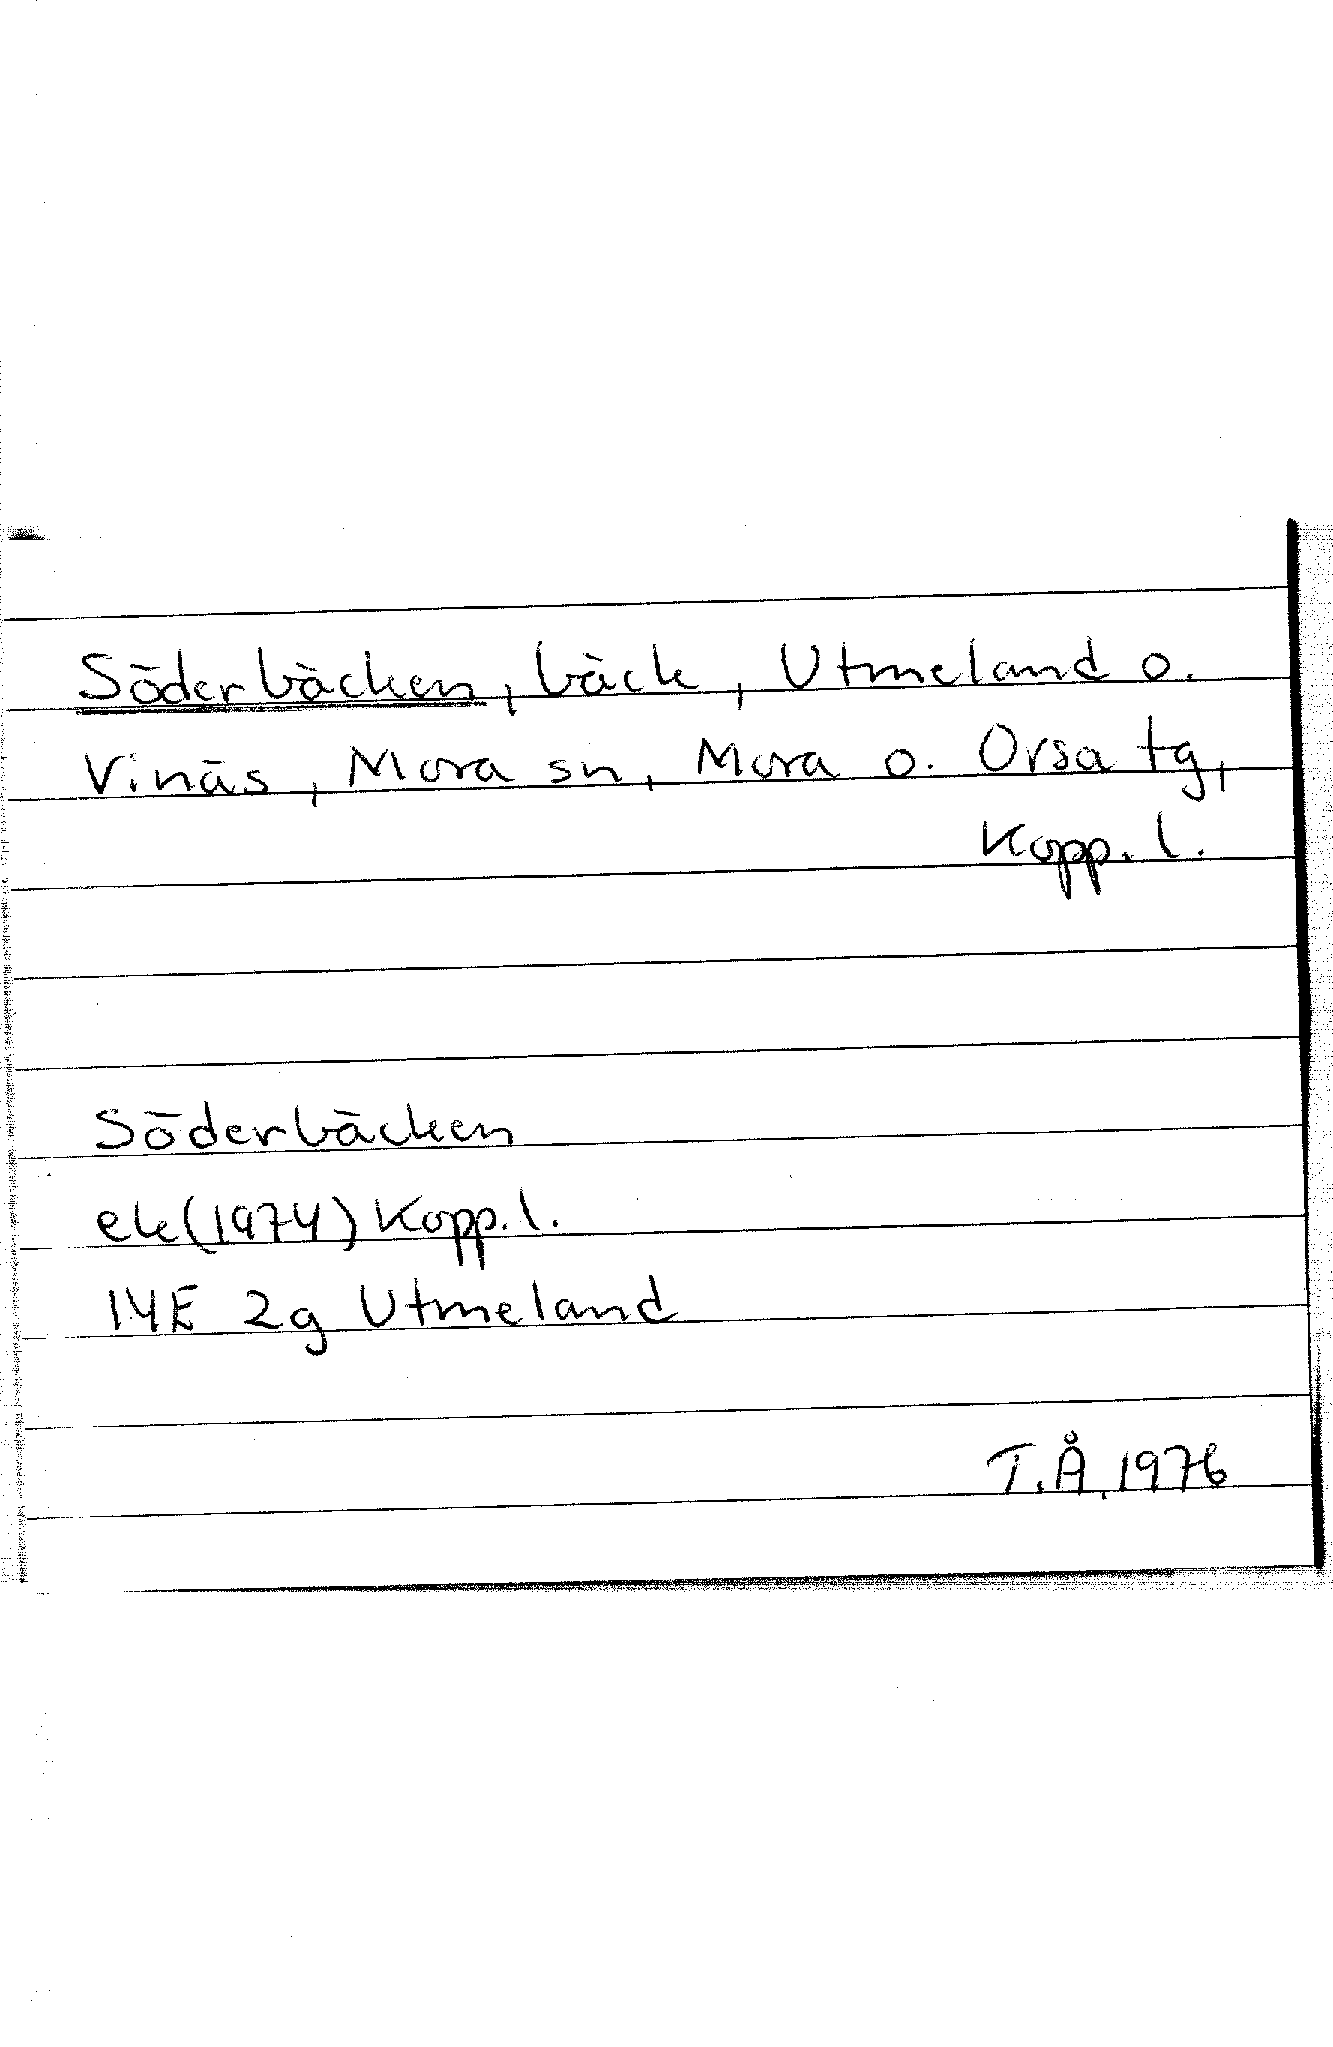 Söderbäcken, bäck, Utmeland o.
Vinäs, Mora sn, Mora o. Orsa tg,
Kopp. l.
Söderbäcken
ek(1974) Kopp. l.
14E 2g Utmeland
T.Å. 1976